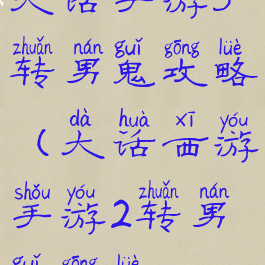 大话手游3
zhuǎn nán guǐ gōng lüè
转男鬼攻略
dà huà xī yóu
(大话西游
shǒu yóu zhuǎn nán
手游2转男
guǐ gōng lüè